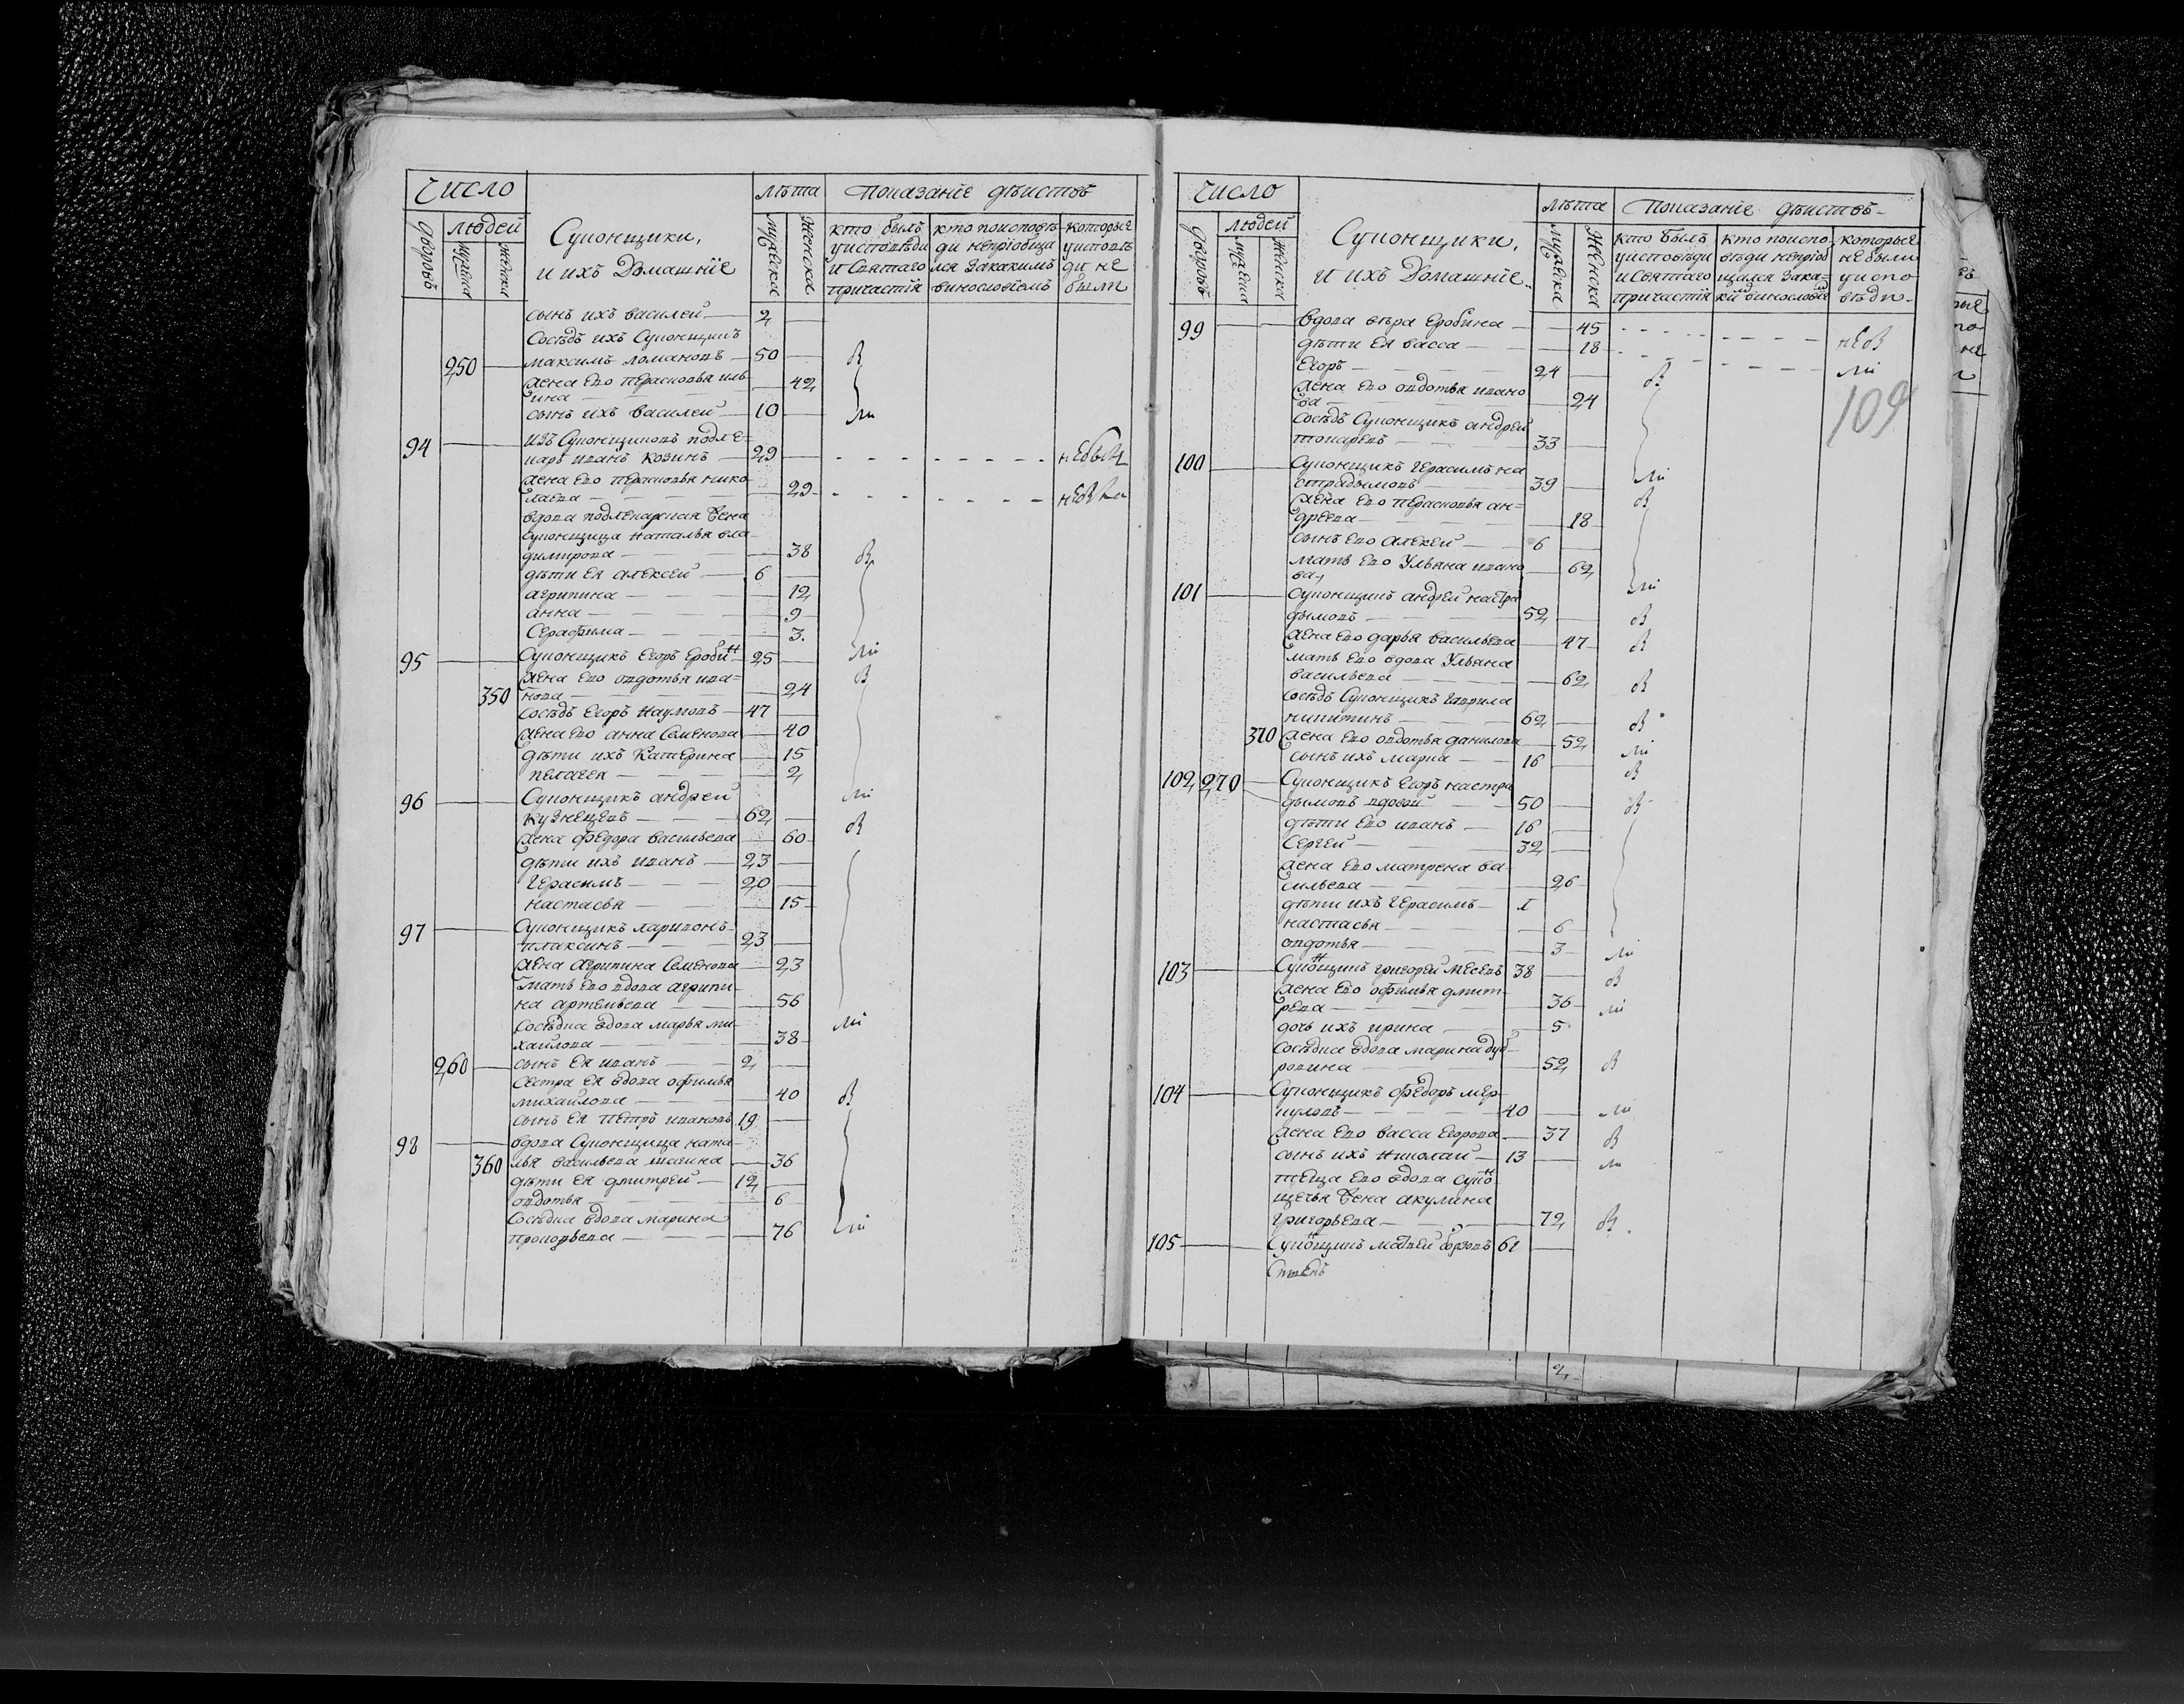 Число
Суконщики,
и ихъ Домашніе
лѣта
показаніе дѣиствъ
дворовъ
людей
мужеска
женска
мужеска
женска
кто былъ
уисповѣди
и Святаго
причастія
кто поисповѣ-
ди непріобща
лся закакимъ
винословіемъ
которые
уисповѣ
ди не
были
сынъ ихъ василей 2
Сосѣдъ ихъ Суконщикъ
250 максимъ ломановъ 50 в
жена ево Парасковья иль
ина 42
сынъ ихъ василей 10 ли
94 изъ Суконщиковъ подле=
карь иванъ козинъ 29 небылъ
жена ево Парасковья нико
лаева 29 не
вдова подлекарская жена
Суконщица Наталья вла
димирова 38 в
дѣти ея алексей 6
агрипина 12
анна 9
Серафима 3
95 Суконщикъ Егоръ Еробкин 25 ли
жена ево овдотья ива=
350 нова 24 в
сосѣдъ Егоръ Наумовъ 47
жена ево анна Семенова 40
дѣти ихъ Катерина 15
пелагея 2
96 Суконщикъ андрей ли
кузнецевъ 62
жена федора васильева 60 в
дѣти ихъ иванъ 23
Герасимъ 20
настасья 15
97 Суконщикъ ларивонъ
плаксинъ 23
жена агрипина Семенова 23
мать ево вдова агрипи
на артемьева 56
Сосѣдка вдова марья ми
хайлова 38 ли
260 сынъ ея иванъ 2
Сестра ея вдова офимья
михайлова 40 в
сынъ ея Петръ ивановъ 19
98 вдова Суконщица ната
360 лья васильева шагина 36
дѣти ея дмитрей 12
овдотья 6
Сосѣдка вдова марина
прокофьева 76 ли
Число
Суконщики,
и ихъ Домашніе
лѣта
показаніе дѣиствъ
дворовъ
людей
мужеска
женска
мужеска
женска
кто былъ
уисповѣди
и Святаго
причастія
кто поиспо
вѣди непріоб
щался зака=
ким винословіем
которые
небыли
уиспо
вѣди
99 вдова вѣра Еробкина 45
дѣти ея васса 18 не в
Егоръ 24 ли
109
жена ево овдотья ивано
ва 24 в
сосѣдъ Суконщикъ андрей
токаревъ 33
100 Суконщикъ Герасимъ на
страдымовъ 39 ли
жена ево Парасковья ан=
дреева 18 в
сынъ ево алексей 6
мать ево Ульяна ивано
ва 62
101 Суконщикъ андрей настра ли
дымовъ 52 в
жена ево дарья васильева 47 в
мать ево вдова Ульяна
васильева 62 в
сосѣдъ Суконщикъ Гаврила
никитинъ 62 в
370 жена ево овдотья данилова 52 ли
сынъ ихъ марка 16 в
102 270 Суконщикъ Егоръ настра
дымовъ вдовой 50 в
дѣти ево иванъ 16
Сергей 32
жена ево матрена ва
сильева 26
дѣти ихъ Герасимъ 1
настасья 6
овдотья 3 ли
103 Суконщикъ григорей месевъ 38 в
жена ево офимья дмит=
рева 36 ли
дочь ихъ ирина 5
Сосѣдка вдова марина дуб
ровина 52 в
104 Суконщикъ Федоръ мер
куловъ 40 ли
жена ево васса Егорова 37 в
сынъ ихъ Николай 13 ли
теща ево вдова Сукон
щечья жена акулина
григорьева 72 в
105 Суконщикъ матвей борзовъ 61
Степень